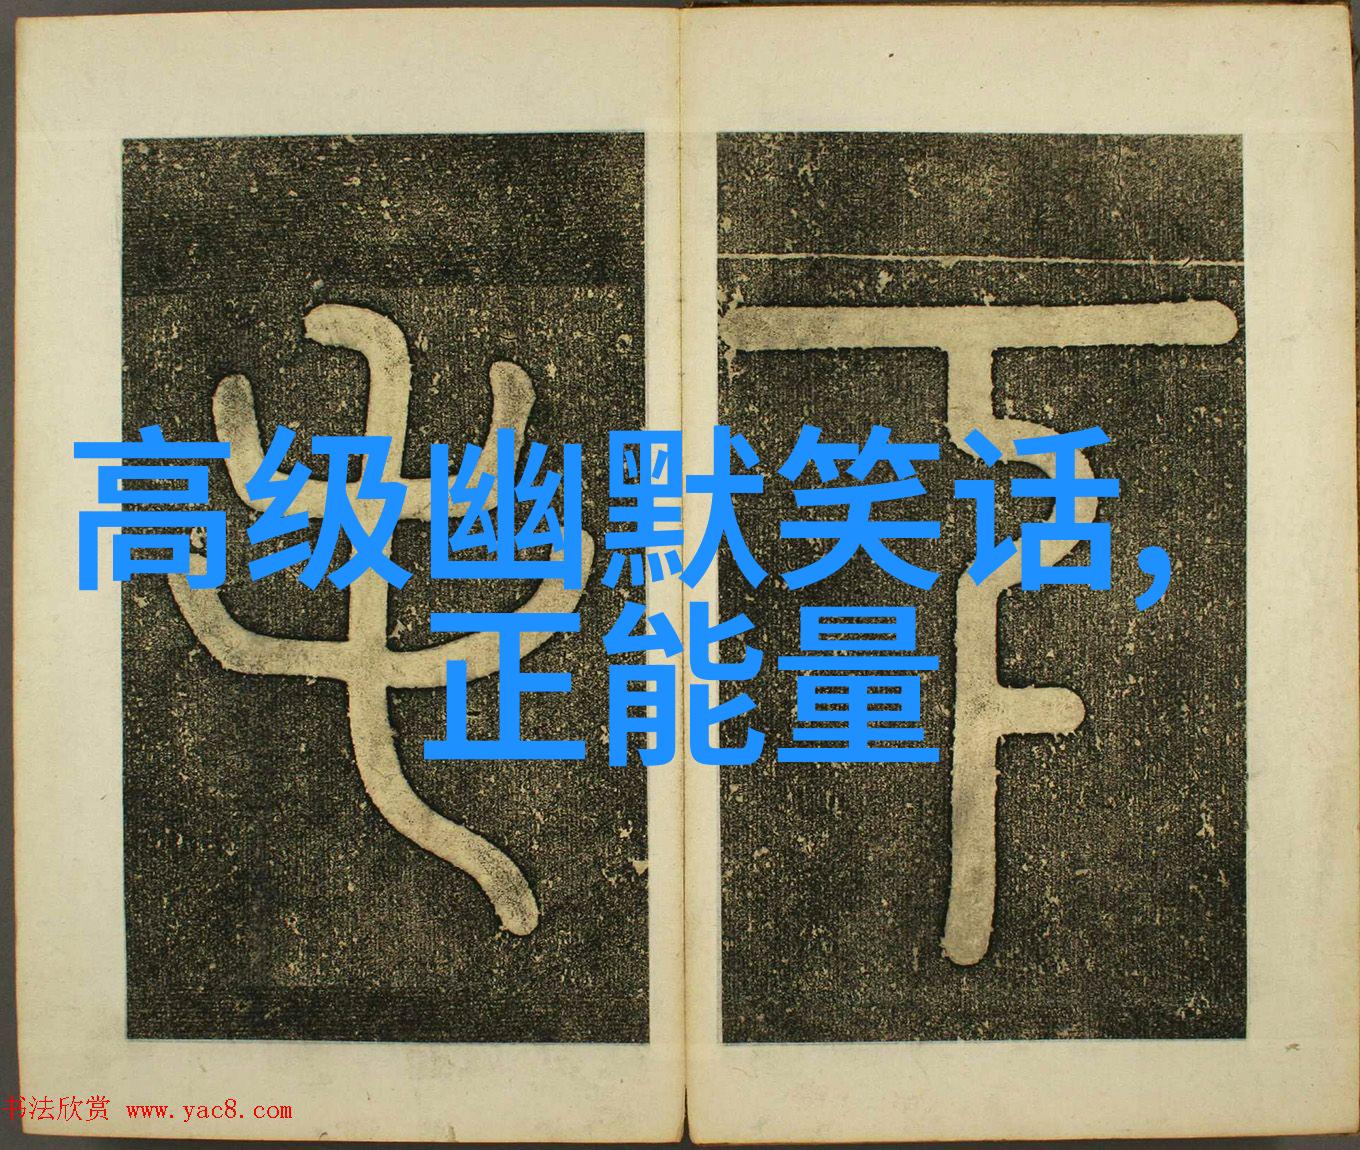 高级幽默笑话,
正能量
书法欣赏 www.yac8.com